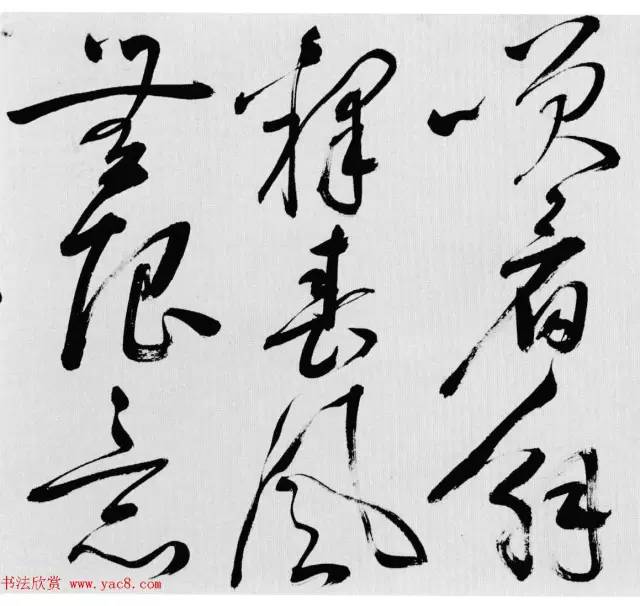 咲看解
釋春風
無限意
书法欣赏 www.yac8.com